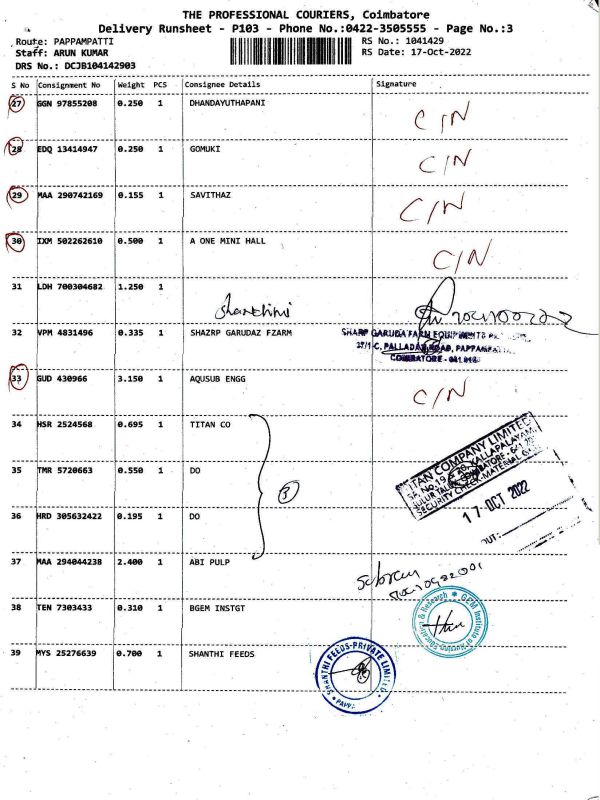 THE PROFESSIONAL COURIERS, Coimbatore
Delivery Runsheet - P103 - Phone No.:0422-3505555 - Page No.:3
Route: PAPPAMPATTI
RS No.: 1041429
Staff: ARUN KUMAR
RS Date: 17-Oct-2022
DRS No.: DCJB104142903
S No Consignment No Weight PCS Consignee Details Signature
27 GGN 97855208 0.250 1 DHANDAYUTHAPANI C/N
28 EDQ 13414947 0.250 1 GOMUKI C/N
29 MAA 290742169 0.155 1 SAVITHAZ C/N
30 IXM 502262610 0.500 1 A ONE MINI HALL C/N
31 LDH 700304682 1.250 1
Shanthini
32 VPM 4831496 0.335 1 SHAZRP GARUDAZ FZARM
SHARP GARUDA FARM EQUIPMENTS
37/1-C, PALLADAM ROAD, PAPPAMPATTI
COIMBATORE
33 GUD 430966 3.150 1 AQUSUB ENGG C/N
34 HSR 2524568 0.695 1 TITAN CO
TITAN COMPANY LIMITED
SECURITY CHECK-MATERIAL
17 OCT 2022
OUT:
35 TMR 5720663 0.550 1 DO
3
36 HRD 305632422 0.195 1 DO
37 MAA 294044238 2.400 1 ABI PULP
38 TEN 7303433 0.310 1 BGEM INSTGT
GEM Institute of Nursing Education & Research
39 MYS 25276639 0.700 1 SHANTHI FEEDS
SHANTHI FEEDS-PRIVATE LIMITED